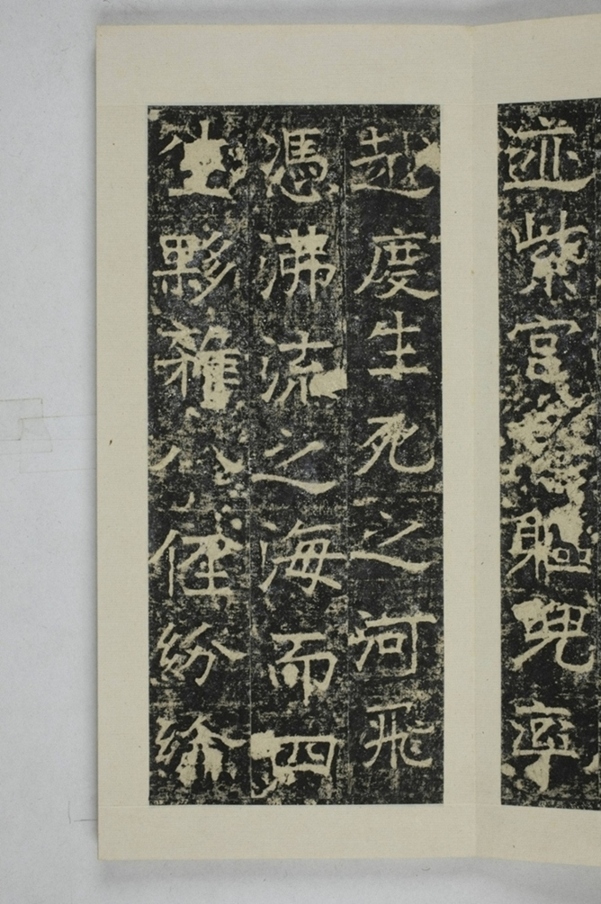 迹紫宮軀兜率
越度生死之河飛
憑沸流之海而四
生夥雜八住紛綸